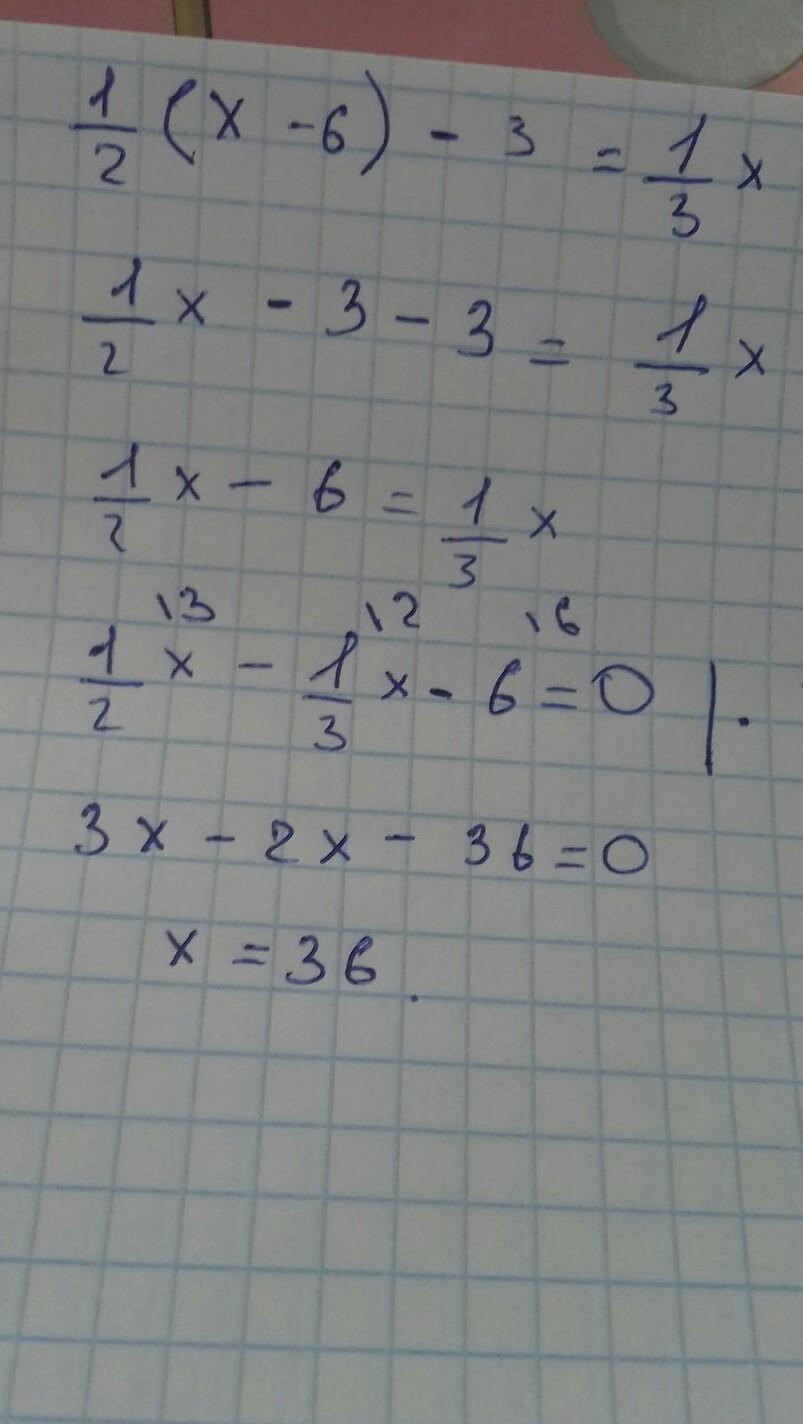 1/2 (x - 6) - 3 = 1/3 x
1/2 x - 3 - 3 = 1/3 x
1/2 x - 6 = 1/3 x
\3 \2 \6
1/2 x - 1/3 x - 6 = 0 | ·
3x - 2x - 36 = 0
x = 36.